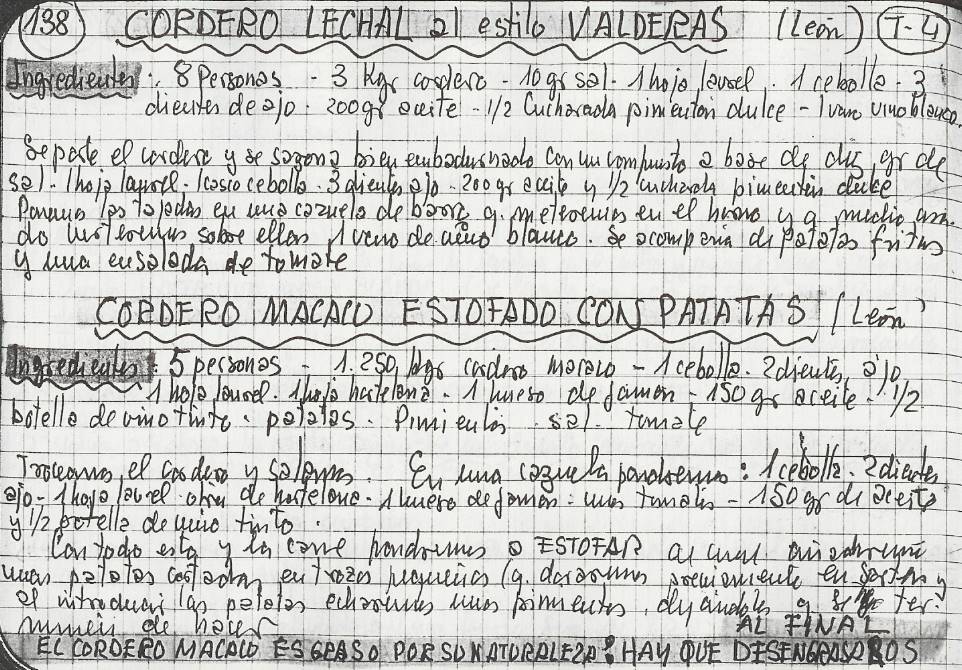 138 CORDERO LECHAL al estilo VALDERAS (León) T-4
Ingredientes: 8 Personas - 3 Kgr cordero - 10 gr sal - 1 hoja laurel. 1 cebolla - 3
dientes de ajo - 200 gr aceite - 1/2 Cucharada pimentón dulce - 1 vaso vino blanco.
Se parte el cordero y se sazona bien embadurnado con un compuesto a base de diez gr de
sal - 1 hoja laurel - 1 casco cebolla - 3 dientes ajo - 200 gr aceite y 1/2 cucharada pimentón dulce
Ponemos las tajadas en una cazuela de barro q. meteremos en el horno y a medio asa-
do verteremos sobre ellas 1 vaso de vino blanco. Se acompaña de patatas fritas
y una ensalada de tomate
CORDERO MACACO ESTOFADO CON PATATAS (León)
Ingredientes: 5 personas - 1.250 kgr cordero macaco - 1 cebolla - 2 dientes ajo
1 hoja laurel - 1 hoja hortelana - 1 hueso de jamón - 150 gr aceite - 1/2
botella de vino tinto - patatas - Pimientos - sal - tomate
Troceamos el cordero y salamos. En una cazuela pondremos: 1 cebolla - 2 dientes
ajo - 1 hoja laurel - otra de hortelana - 1 hueso de jamón - unos tomates - 150 gr de aceite
y 1/2 botella de vino tinto.
Con todo esto y la carne pondremos a ESTOFAR al cual añadiremos
unas patatas cortadas en trozos pequeños (q. doraremos previamente en sartén y
al introducir las patatas echaremos unos pimientos, dejándoles q se ter-
minen de hacer
AL FINAL
EL CORDERO MACACO ES GRASO POR SU NATURALEZA: HAY QUE DESENGRASARLOS